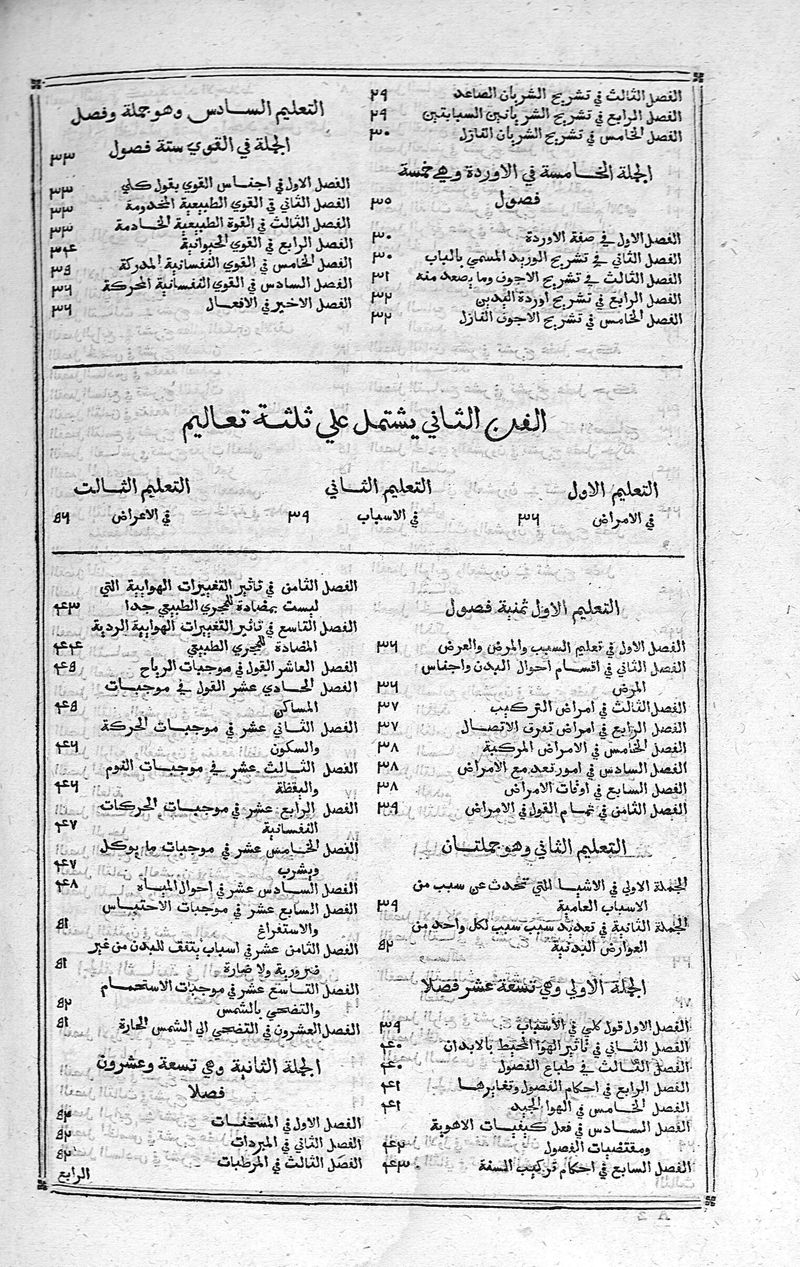 الفصل الثالث في تشريح الشريان الصاعد ٢٩
الفصل الرابع في تشريح الشريانين السباتيين ٢٩
الفصل الخامس في تشريح الشريان النازل ٣٠
الجملة الخامسة في الاوردة وهي خمسة
فصول ٣٥
الفصل الاول في صفة الاوردة ٣٠
الفصل الثاني في تشريح الوريد المسمي بالباب ٣٠
الفصل الثالث في تشريح الاجوف وما يصعد منه ٣١
الفصل الرابع في تشريح اوردة اليدين ٣٢
الفصل الخامس في تشريح الاجوف النازل ٣٢
التعليم السادس وهو جملة وفصل
الجملة في القوي ستة فصول ٣٣
الفصل الاول في اجناس القوي بقول كلي ٣٣
الفصل الثاني في القوي الطبيعية المخدومة ٣٣
الفصل الثالث في القوة الطبيعية الخادمة ٣٣
الفصل الرابع في القوي الحيوانية ٣۴
الفصل الخامس في القوي النفسانية المدركة ٣٥
الفصل السادس في القوي النفسانية المحركة ٣٦
الفصل الاخير في الافعال ٣٦
الفن الثاني يشتمل علي ثلثة تعاليم
التعليم الاول
في الامراض ٣٦
التعليم الثاني
في الاسباب ٣٩
التعليم الثالث
في الاعراض ٥٦
التعليم الاول ثمنية فصول
الفصل الاول في تعليم السبب والمرض والعرض ٣٦
الفصل الثاني في اقسام احوال البدن واجناس
المرض ٣٦
الفصل الثالث في امراض التركيب ٣٧
الفصل الرابع في امراض تفرف الاتصال ٣٧
الفصل الخامس في الامراض المركبة ٣٨
الفصل السادس في امور تعد مع الامراض ٣٨
الفصل السابع في اوقات الامراض ٣٨
الفصل الثامن في تمام القول في الامراض ٣٩
التعليم الثاني وهو جملتان
الجملة الاولي في الاشيا التي تحدث عن سبب من
الاسباب العامية ٣٩
الجملة الثانية في تعديد سبب سبب لكل واحد من
العوارض البدنية ٥٢
الجملة الاولي وهي تسعة عشر فصلا
الفصل الاول قول كلي في الاسباب ٣٩
الفصل الثاني في تاثير الهوا المحيط بالابدان ۴٠
الفصل الثالث في طباع الفصول ۴٠
الفصل الرابع في احكام الفصول وتغايرها ۴١
الفصل الخامس في الهوا الجيد ۴١
الفصل السادس في فعل كيفيات الاهوية
ومقتضيات الفصول ۴٢
الفصل السابع في احكام تركيب السنة ۴٣
الفصل الثامن في تاثير التغييرات الهوايية التي
ليست بمضادة للمجري الطبيعي جدا ۴٣
الفصل التاسع في تاثير التغييرات الهوايية الردية
المضادة للمجري الطبيعي ۴۴
الفصل العاشر القول في موجبات الرياح ۴٥
الفصل الحادي عشر القول في موجبات
المساكن ۴٥
الفصل الثاني عشر في موجبات الحركة
والسكون ۴٦
الفصل الثالث عشر في موجبات النوم
واليقظة ۴٦
الفصل الرابع عشر في موجبات الحركات
النفسانية ۴٧
الفصل الخامس عشر في موجبات ما يوكل
ويشرب ۴٧
الفصل السادس عشر في احوال المياه ۴٨
الفصل السابع عشر في موجبات الاحتباس
والاستفراغ ٥١
الفصل الثامن عشر في اسباب يتفف للبدن من غير
ضرورية ولا ضارة ٥١
الفصل التاسع عشر في موجبات الاستحمام
والتضحي بالشمس ٥٢
الفصل العشرون في التضحي الي الشمس الحارة ٥١
الجملة الثانية وهي تسعة وعشرون
فصلا
الفصل الاول في المسخنات ٥٢
الفصل الثاني في المبردات ٥٢
الفصل الثالث في المرطبات ٥٢
الرابع